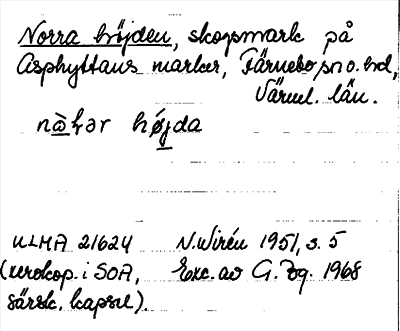 Norra höjden, skogsmark på
Asphyttans marker, Färnebo sn o. hd,
Värml. län.
nò̱ɽər hǿjda
ULMA 21624 N. Wirén 1951, s. 5
(xerokop. i SOA, Exc. av G. Bg. 1968
särsk. kapsel).